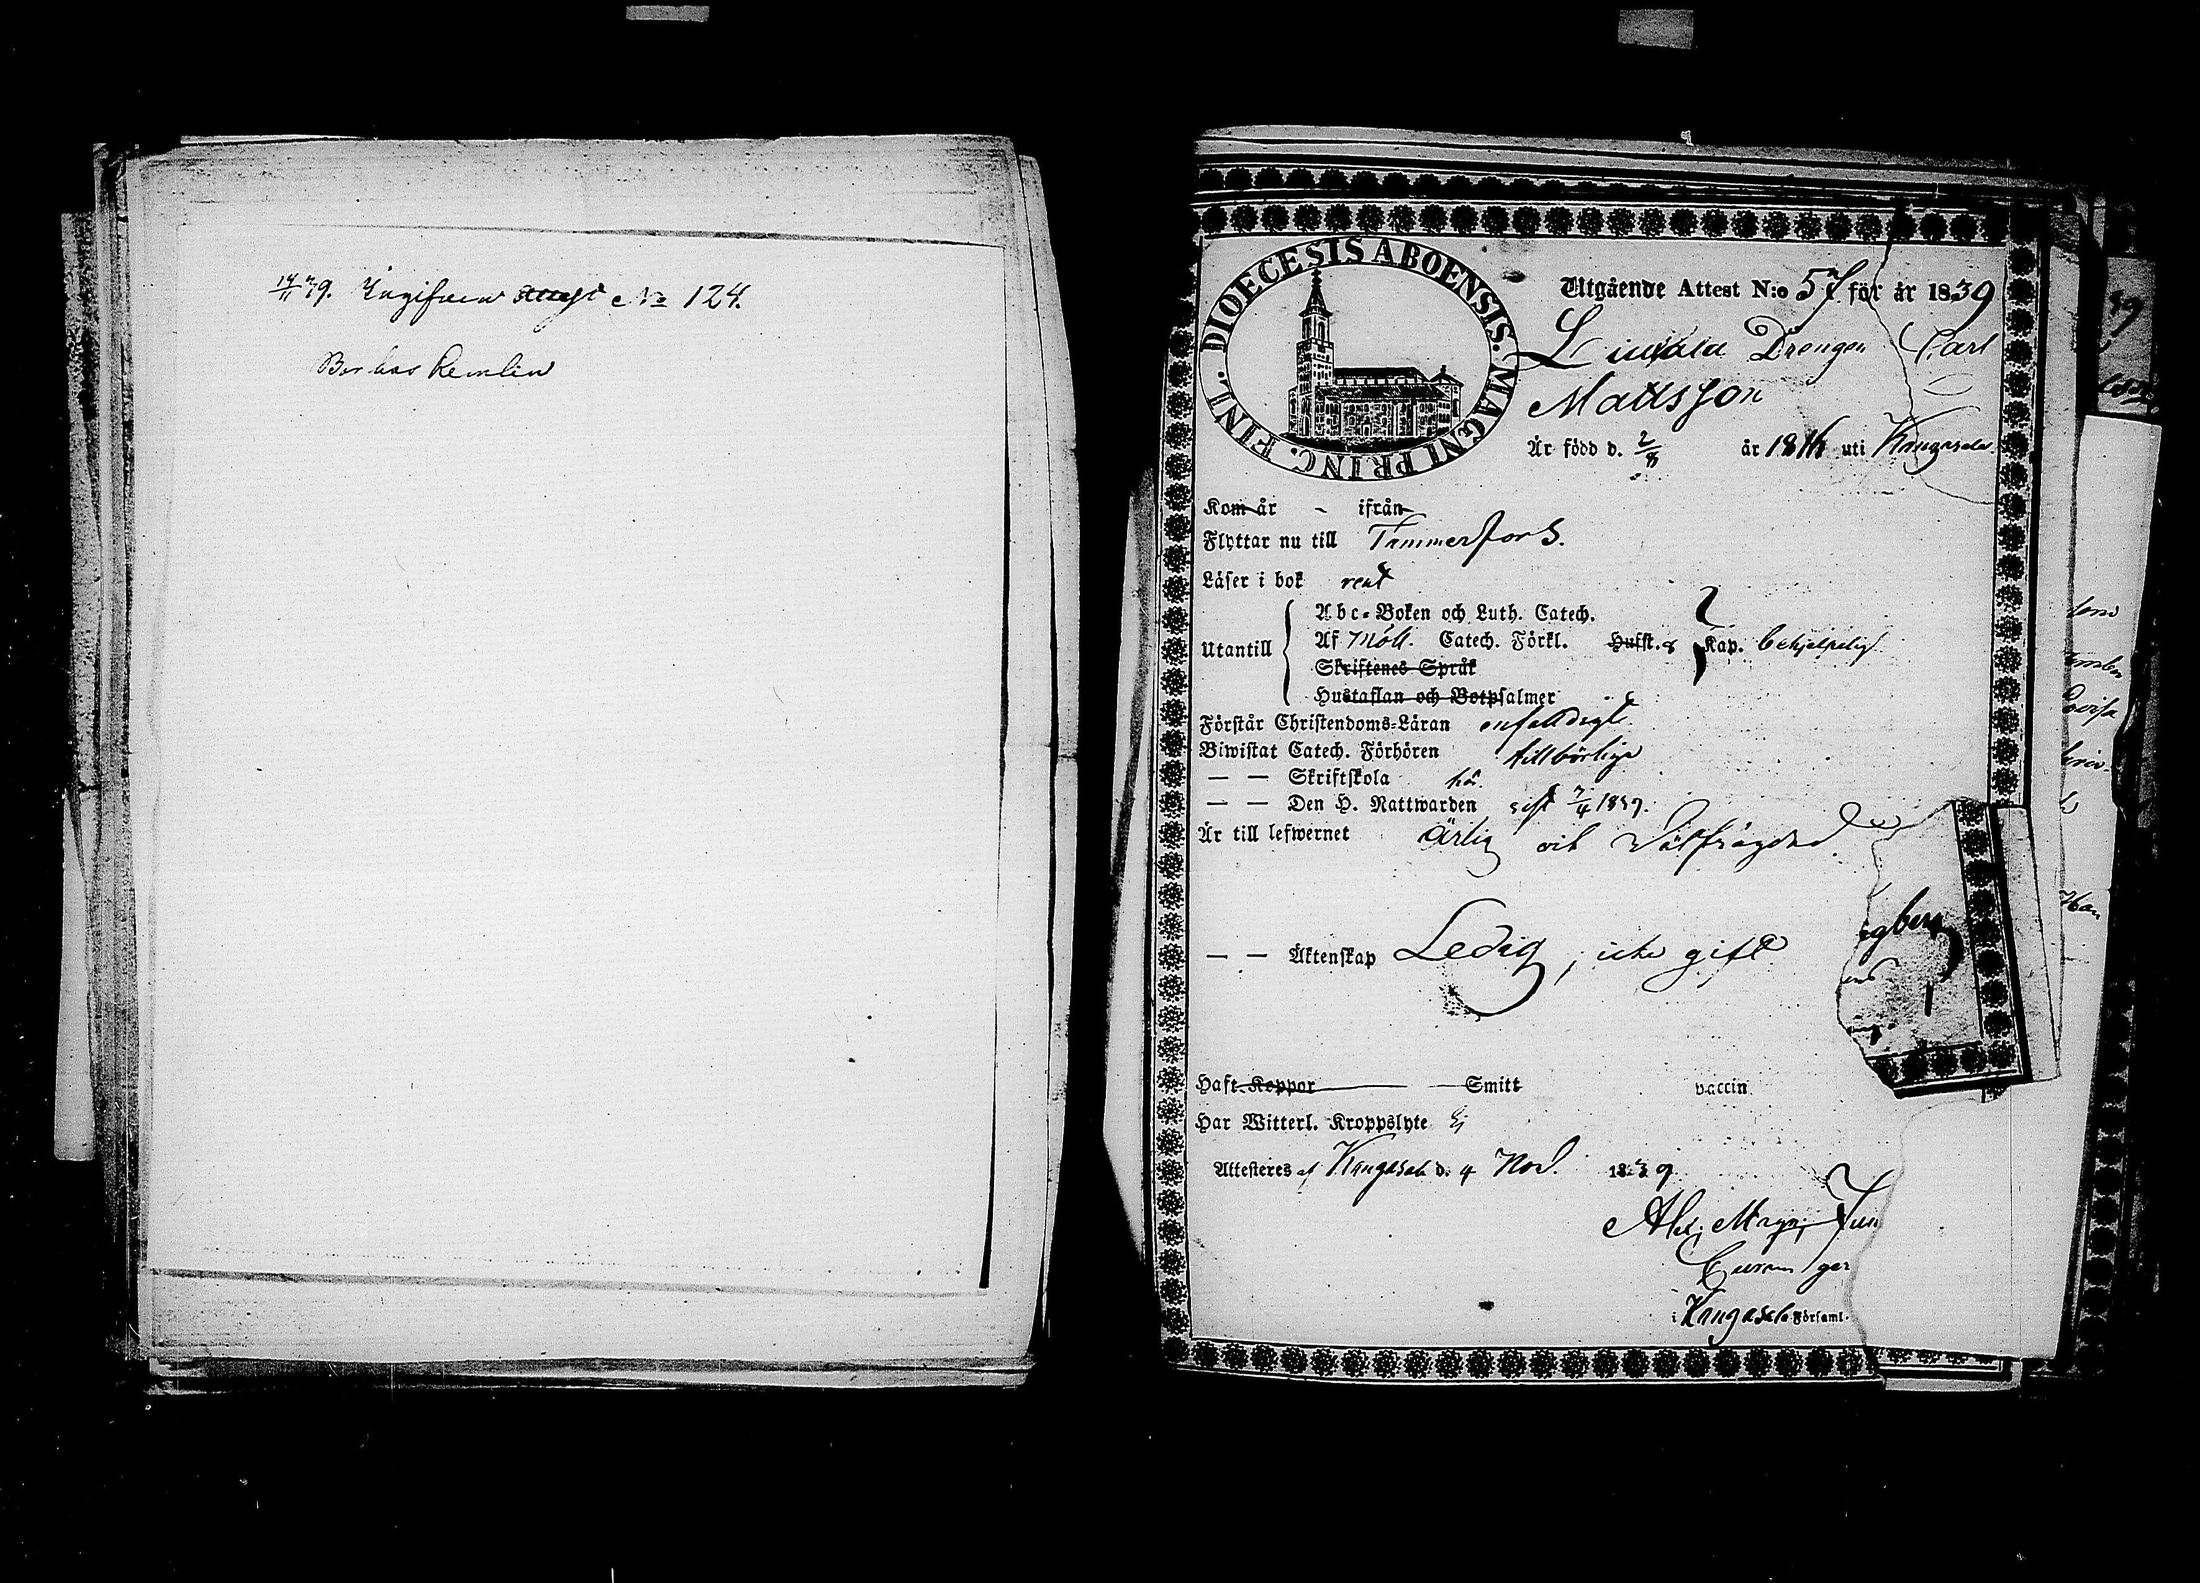 17/11 39. Ingifven attest No 124.
Bor hos Remlin
DIOECESIS ABOENSIS. MAGNI PRINC. FINL.
Utgående Attest N:o 57 för år 1839
Drengen Carl
Mattsson
Är född d. 2/8 år 1816 uti Kangasala
Kom år - ifrån
Flyttar nu till Tammerfors.
Läser i bok rent
Abc-Boken och Luth. Catech.
Utantill
Af Möll. Catech. Förkl. Husst. 8 Kap. behjelpelig
Skriftenes Språk
Hustaflan och Botpsalmer
Förstår Christendoms-Läran enfaldigt
Biwistat Catech. Förhören tillbörligt
— — Skriftskola
— — Den H. Nattwarden sist 7/4 1839.
Är till lefwernet ärlig och välfrägdad
— — Äktenskap Ledig, icke gift
Haft Koppor Smitt vaccin
Har Witterl. Kroppslyte Ej
Attesteras af Kangasala d. 4 Nov. 1839
Magn.
i Kangasala Församl.